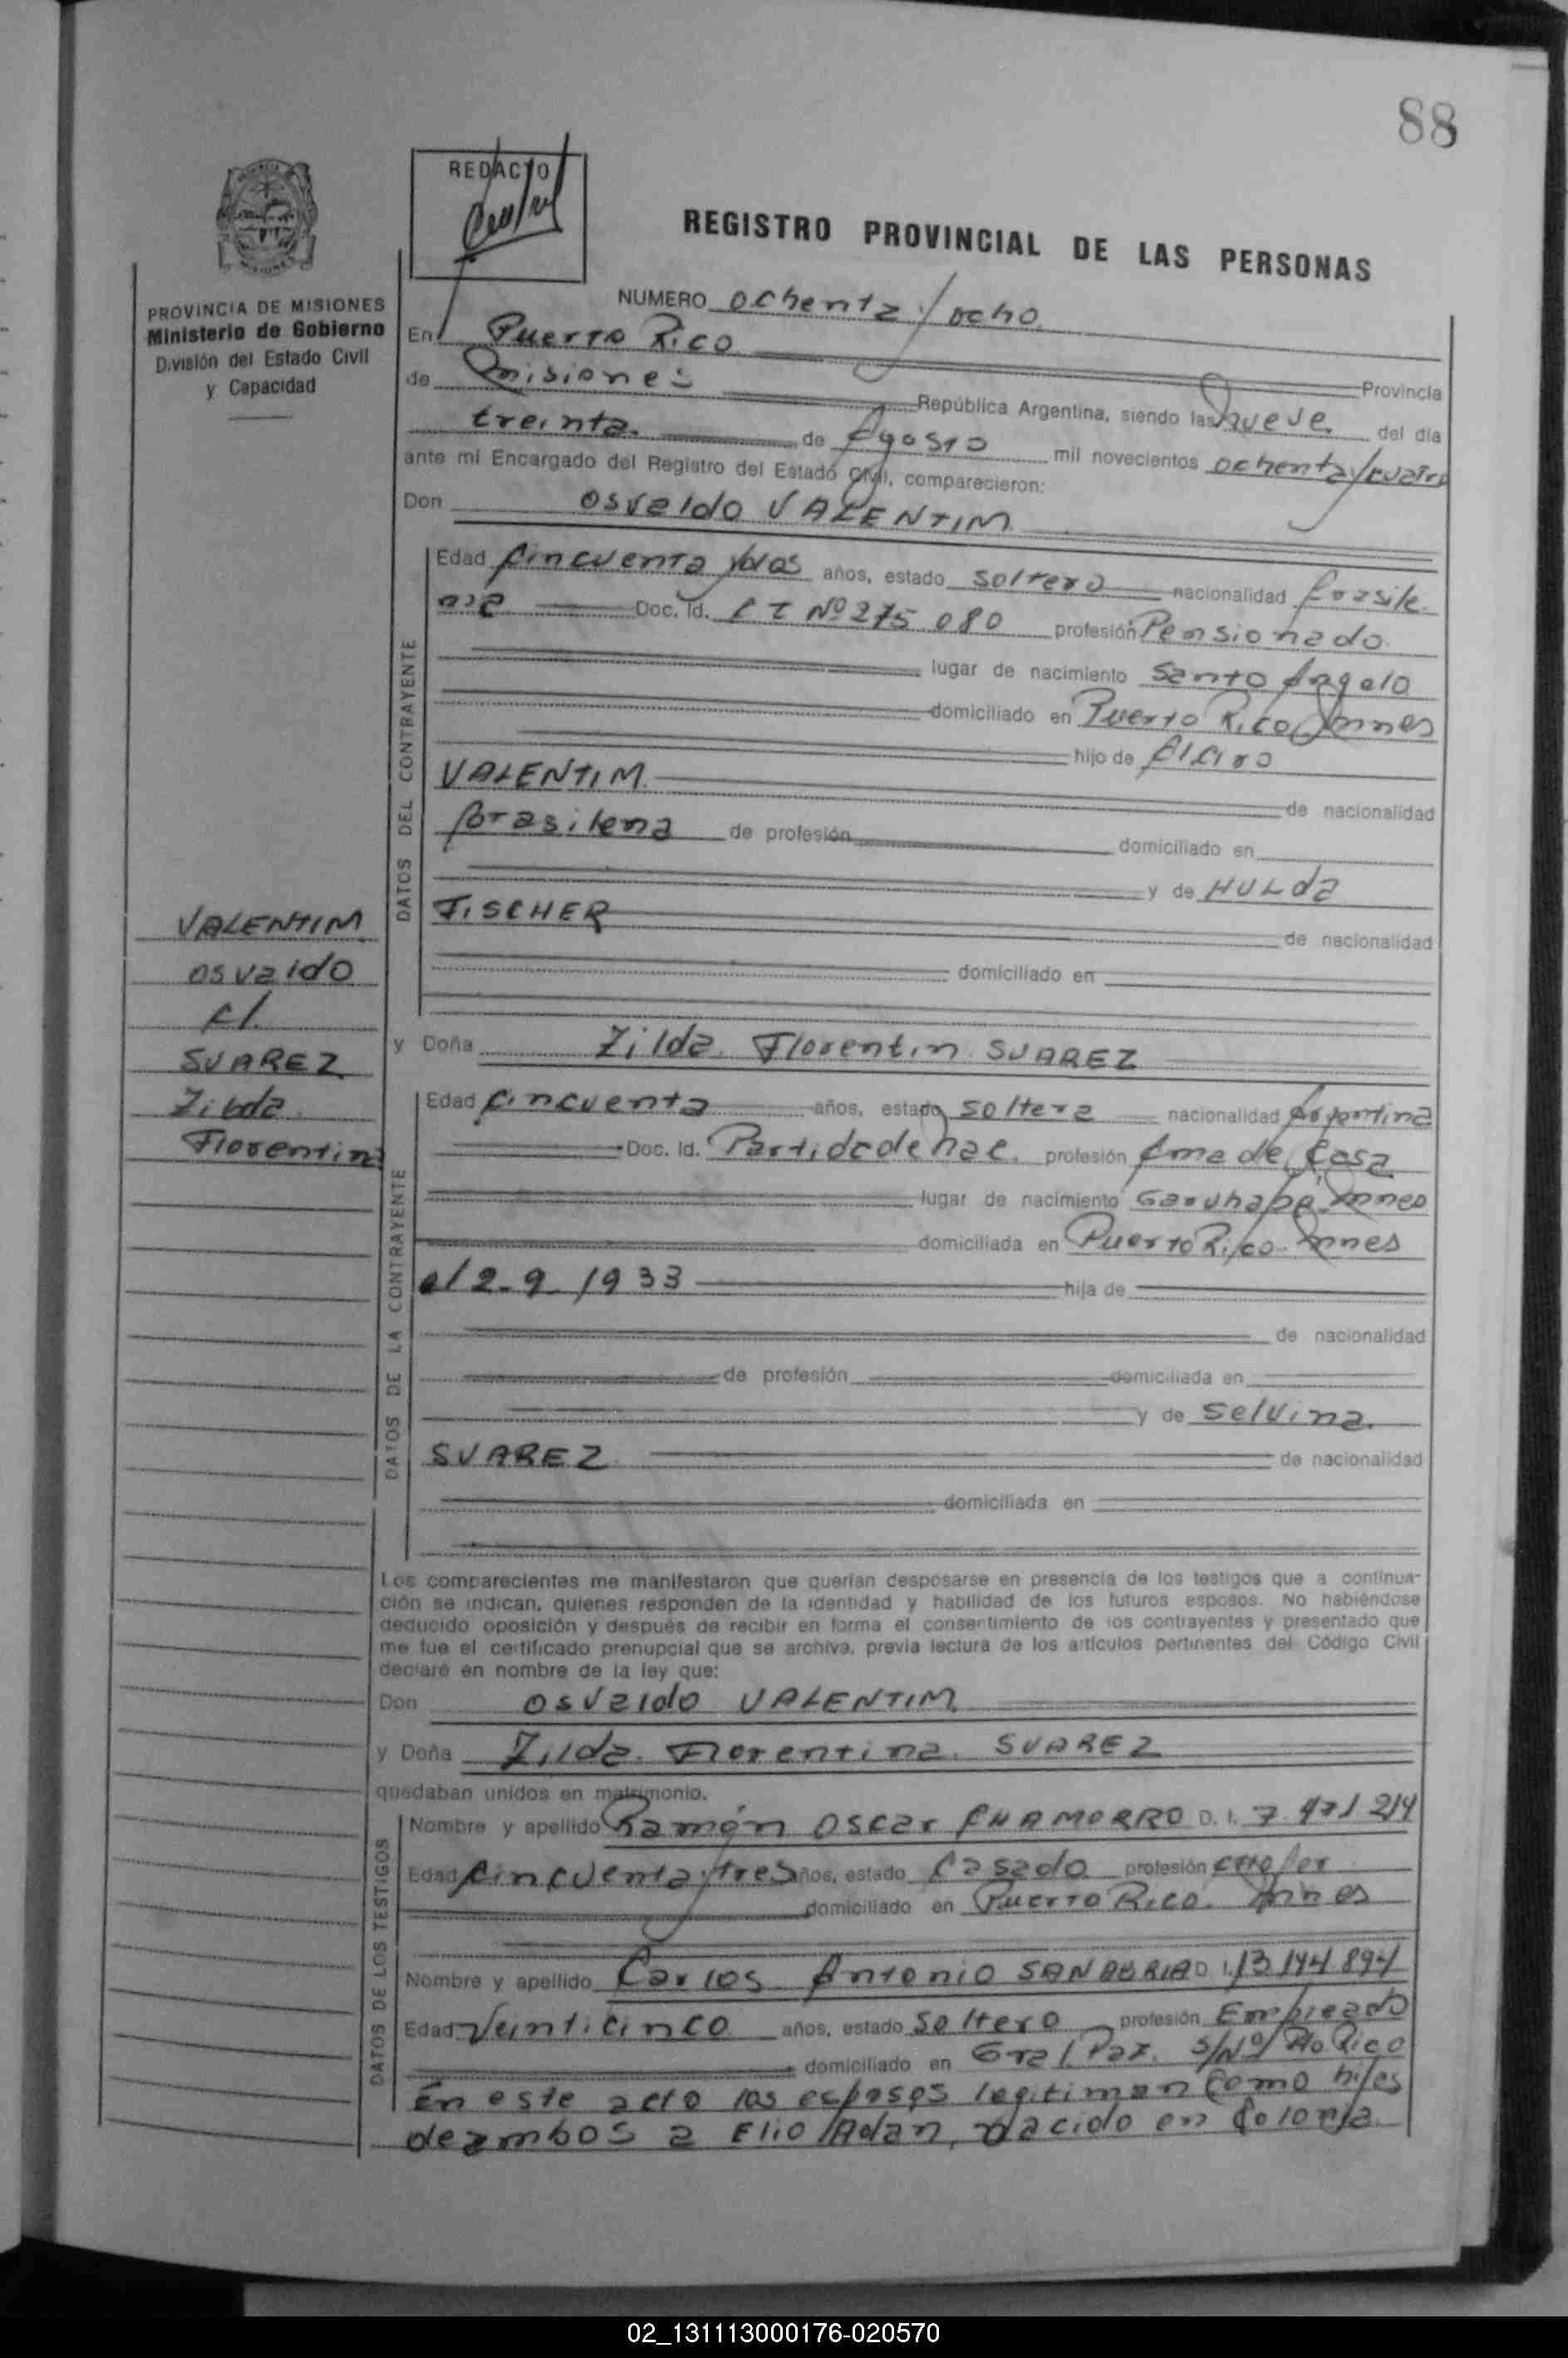 88
REDACTO
REGISTRO PROVINCIAL DE LAS PERSONAS
PROVINCIA DE MISIONES
Ministerio de Gobierno
División del Estado Civil
y Capacidad
NUMERO ochenta y ocho
En Puerto Rico Provincia
de Misiones República Argentina, siendo las nueve del día
treinta de Agosto mil novecientos ochenta y cuatro
ante mí Encargado del Registro del Estado Civil, comparecieron:
Don Osvaldo VALENTIM
DATOS DEL CONTRAYENTE
Edad Cincuenta y años, estado soltero nacionalidad brasile
Doc. Id. C I Nº 275 080 profesión Pensionado.
lugar de nacimiento Santo Angelo
domiciliado en Puerto Rico Mnes
hijo de
VALENTIM de nacionalidad
brasilena de profesión domiciliado en
y de HULda
FISCHER de nacionalidad
domiciliado en
VALENTIM
Osvaldo
c/.
SUAREZ
Zilda
Florentina
y Doña Zilda Florentin SUAREZ
DATOS DE LA CONTRAYENTE
Edad Cincuenta años, estado soltera nacionalidad Argentina
Doc. Id. Partida de nac. profesión Ama de Casa
lugar de nacimiento Garuhape Mnes
domiciliada en Puerto Rico Mnes
el 2-9-1933 hija de
de nacionalidad
de profesión domiciliada en
y de Selvina
SUAREZ de nacionalidad
domiciliada en
Los comparecientes me manifestaron que querían desposarse en presencia de los testigos que a continua-
ción se indican, quienes responden de la identidad y habilidad de los futuros esposos. No habiéndose
deducido oposición y después de recibir en forma el consentimiento de los contrayentes y presentado que
me fue el certificado prenupcial que se archiva, previa lectura de los artículos pertinentes del Código Civil
declaré en nombre de la ley que:
Don Osvaldo VALENTIM
y Doña Zilda Florentina SUAREZ
quedaban unidos en matrimonio.
DATOS DE LOS TESTIGOS
Nombre y apellido Ramón Oscar CHAMORRO D. I. 7 471 214
Edad Cincuenta y tres años, estado Casado profesión Chofer
domiciliado en Puerto Rico. Mnes
Nombre y apellido Carlos Antonio SANABRIA D. I. 13 194 894
Edad Veinticinco años, estado soltero profesión Empleado
domiciliado en Gral Paz. S/Nº Pto Rico
En este acto los esposos legitiman como hijos
de ambos a Elio Adan, nacido en Colonia
02_131113000176-020570